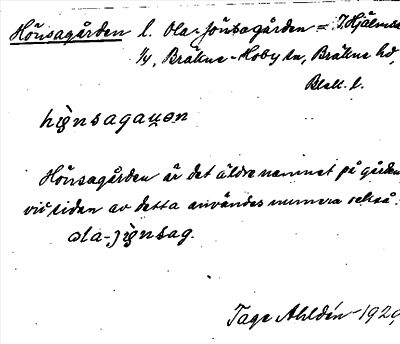 Hönsagården l. Ola-Jönsagården = I Hjälmsa
1/4, Bräkne-Hoby sn, Bräkne hd,
Blek. l.
hi̯ɵnsagaʮɵn
Hönsagården är det äldre namnet på gården
vid sidan av detta användes numera också
ola-ji̯ɵnsag.
Tage Ahldén 1929